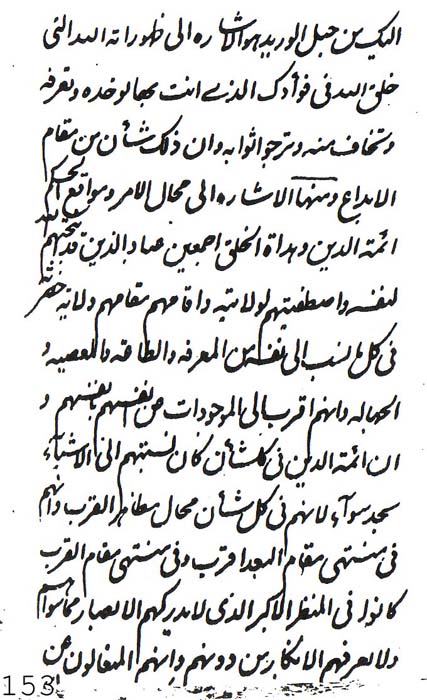 اليك من حبل الوريد هو الاشاره الى ظهورات الله التى
خلق الله فى فوأدك الذى انت بها توحده وتعرفه
وتخاف منه وترجوا ثوابه وان ذلك شأن من مقام
الابداع ومنها الاشاره الى محال الامر ومواقع الحكم
ائمة الدين وهداة الخلق اجمعين عباد الذين قد انتجبهم الله
لنفسه واصطفيتهم لولايته واقامهم مقامهم ولاية حضرته
فى كل ما نسب الى نفسه من المعرفه والطاقه والمعصيه و
الجهاله وانهم اقرب الى الموجودات من انفسهم بانفسهم و
ان ائمة الدين فى كلشأن كان نسبتهم الى الاشياء
بحد سوآء لانهم فى كل شأن محال مظاهر القرب وانهم
فى منتهى مقام البعد اقرب وفى منتهى مقام القرب
كانوا فى المنظر الاكبر الذى لا يدركهم الابصار مما سواهم
ولا يعرفهم الافكار من دونهم وانهم المتعالون عن
153